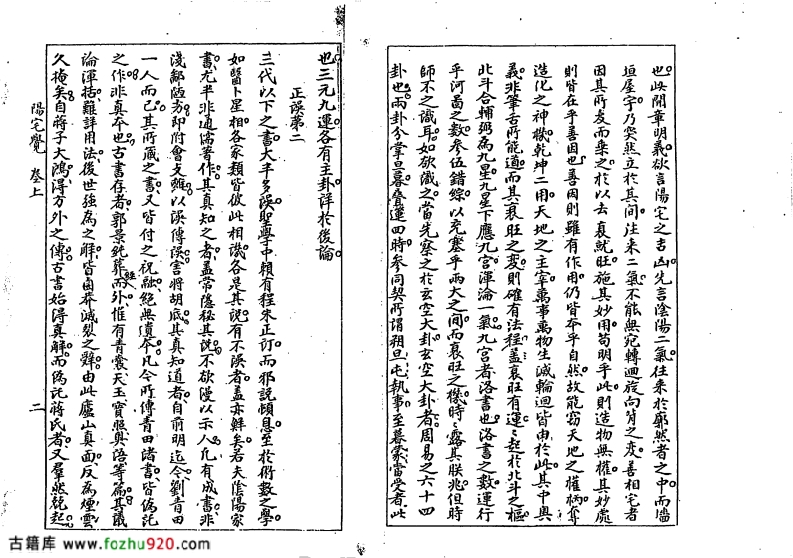 也此開章明義欲言陽宅之吉凶先言陰陽二氣往來於廓然者之中而牆
垣屋宇乃突然立於其間往來二氣不能無宛轉迴旋向背之變善相宅者
因其所友而乘之於以去衰就旺施其妙用苟明乎此則造物無權其妙處
則皆在乎善因也善因則雖有作用仍皆本乎自然故能竊天地之權柄奪
造化之神機乾坤二用天地之主宰萬事萬物生滅輪迴皆由於此其中奧
義非筆舌所能道而其衰旺之變則確有法程蓋衰旺有運運起於北斗之樞
北斗合輔弼為九星九星下應九宮渾淪一氣九宮者洛書也洛書之數運行
乎河圖之數參伍錯綜以充塞乎兩大之間而衰旺之機時時露其朕兆但時
師不之識耳如欲識之當先察之於玄空大卦玄空大卦者周易之六十四
卦也兩卦分掌旦暮疊運四時參同契所謂朔旦屯執事至暮蒙當受者此
也三元九運各有主卦詳於後論
正誤第二
三代以下之書大半多誤聖學中賴有程朱正訂而邪說頓息至於術數之學
如醫卜星相各家類皆彼此相譏各是其說有不誤者蓋亦鮮矣若夫陰陽家
書尤半非通儒著作其真知之者蓋常隱秘其說不欲漫以示人凡有成書非
淺鄙陋劣即附會支離以誤傳誤言將胡底其真知道者自前明迄今劉青田
一人而已其所藏之書又皆付之祝融絕無遺本凡今所傳青田諸書皆偽託
之作非真本也古書存者郭景純葬經而外惟有青囊天玉寶照奧語等篇其議
論渾括難詳用法後世強為之解皆鹵莽滅裂之辭由此廬山真面反為煙雲
久掩矣自蔣子大鴻得方外之傳古書始得真解而偽託蔣氏者又羣然競起
陽宅覺 卷上 二
古籍库 www.fozhu920.com